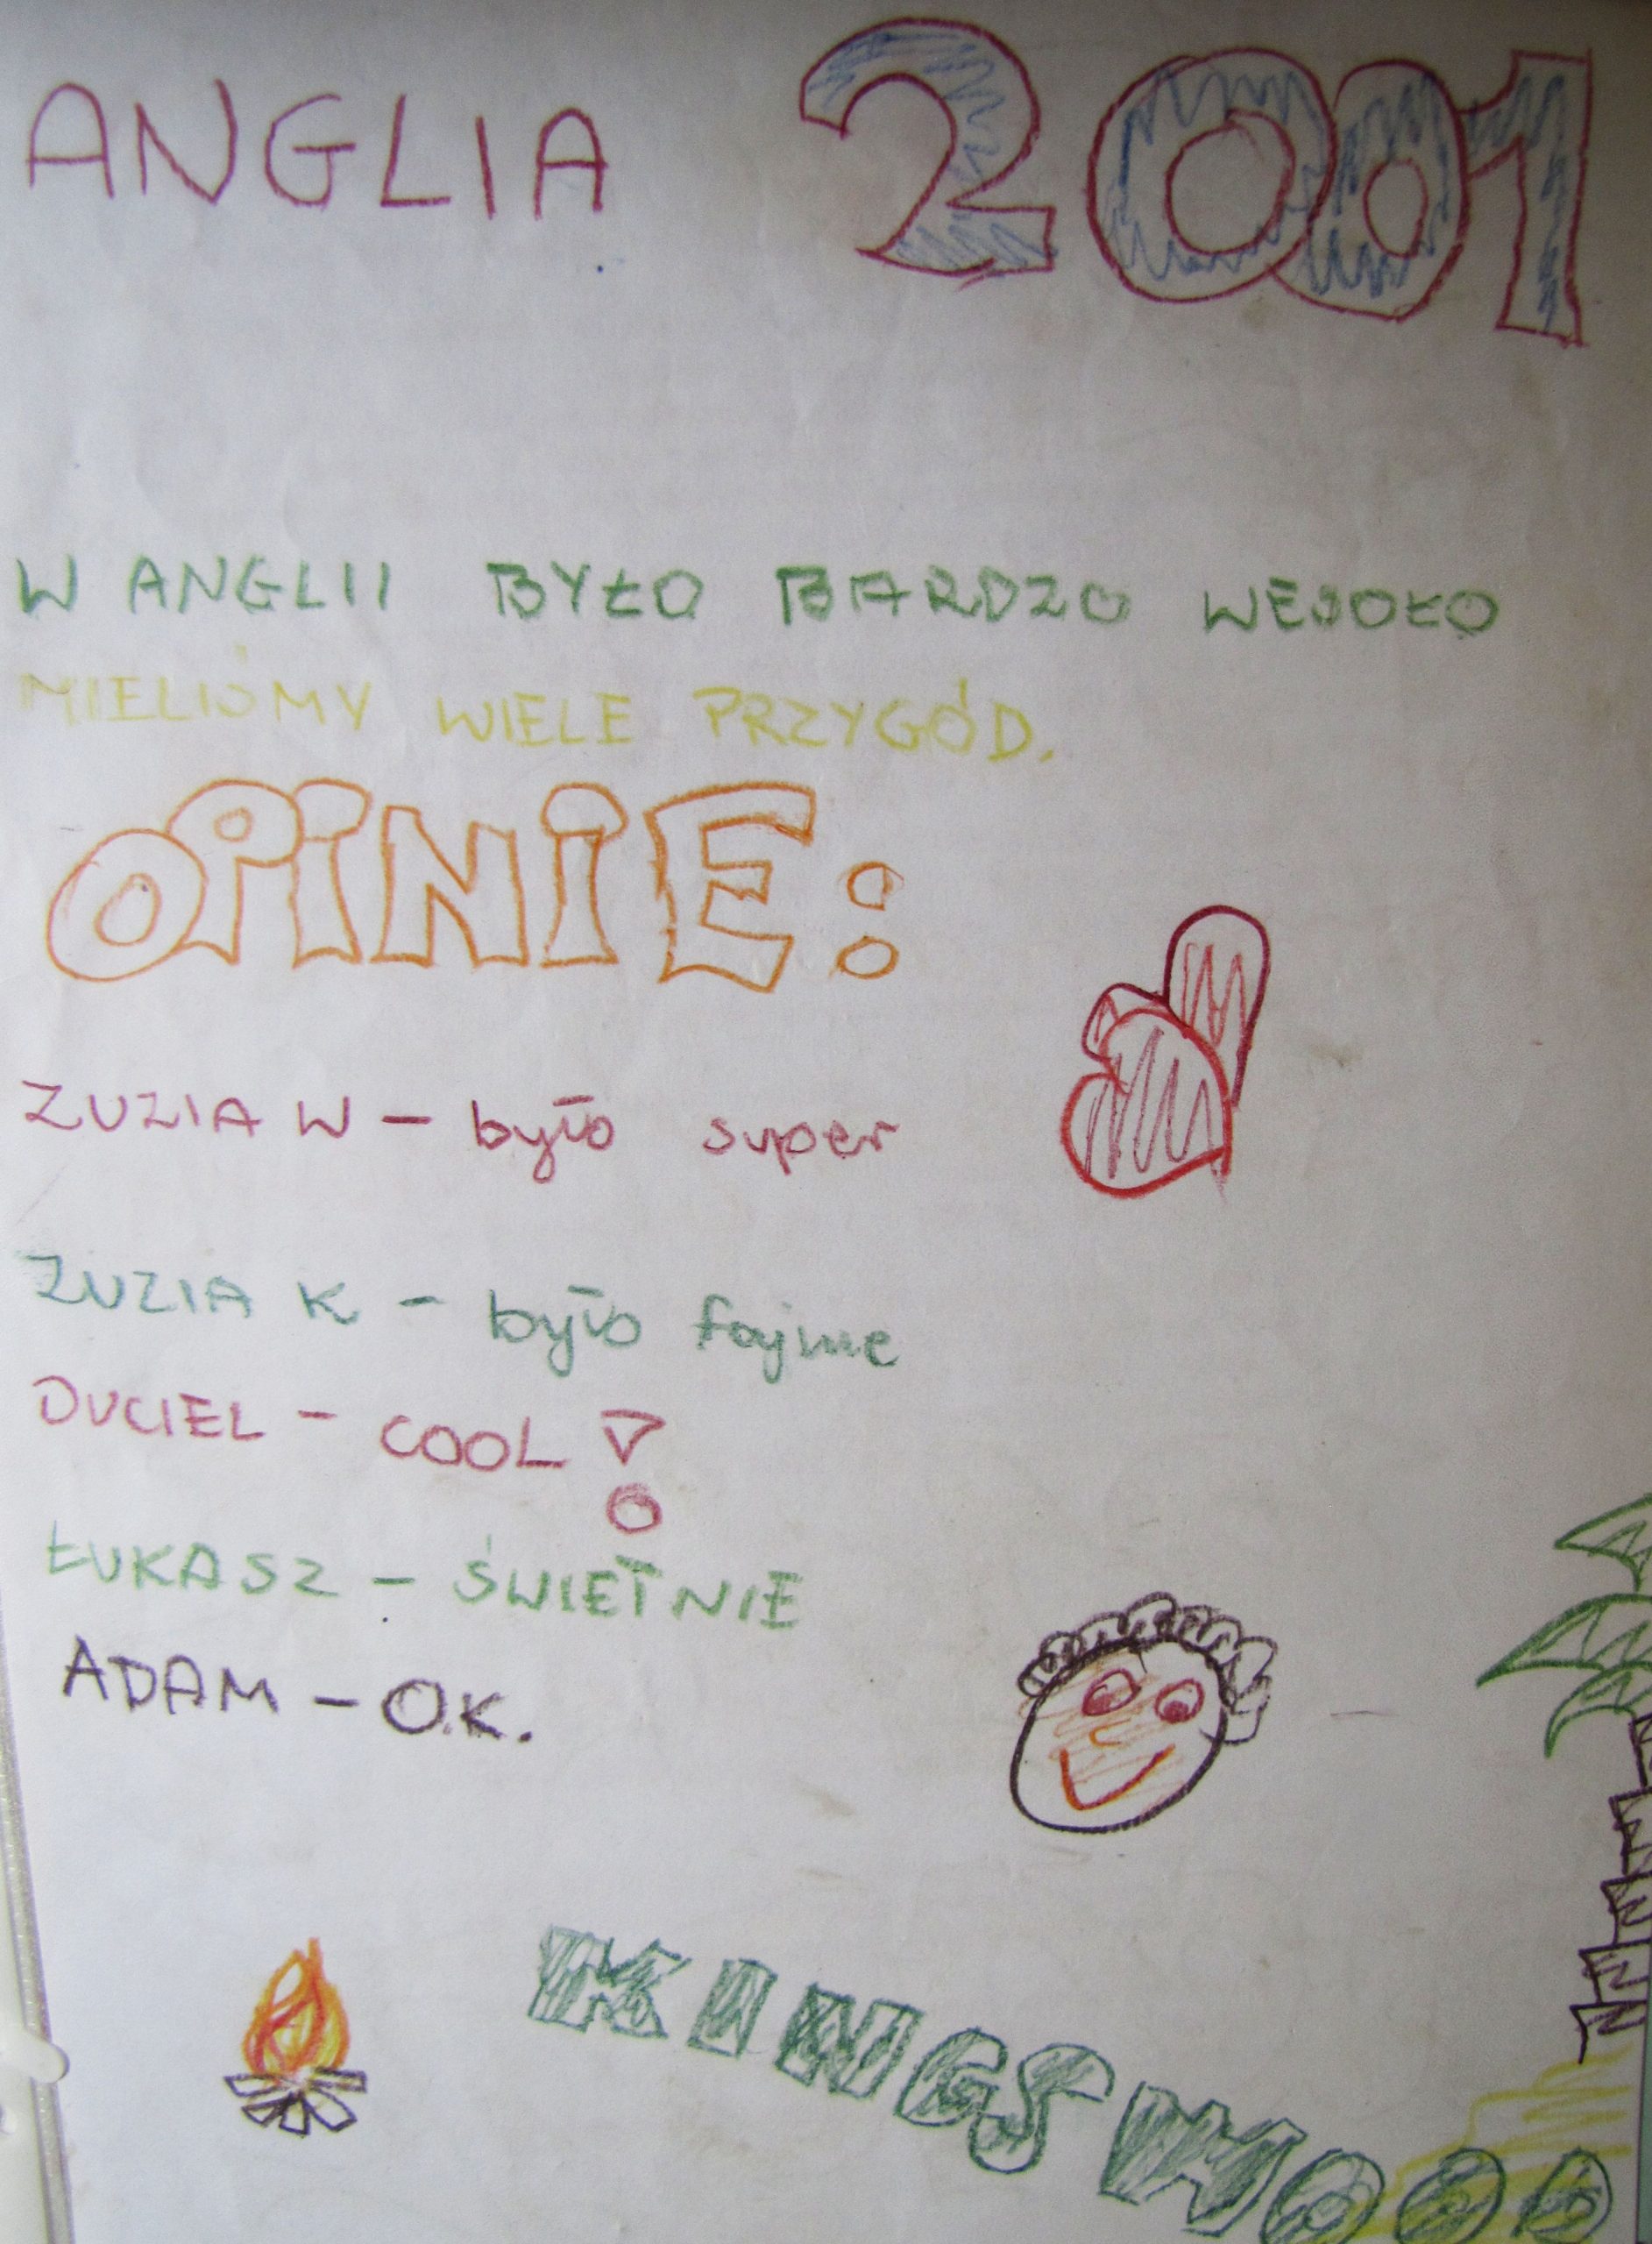 ANGLIA 2001
W ANGLII BYŁO BARDZO WESOŁO
MIELIŚMY WIELE PRZYGÓD.
OPINIE:
ZUZIA W - było super
ZUZIA K - było fajnie
DUCIEL - COOL!
ŁUKASZ - ŚWIETNIE
ADAM - O.K.
KINGSWOOD